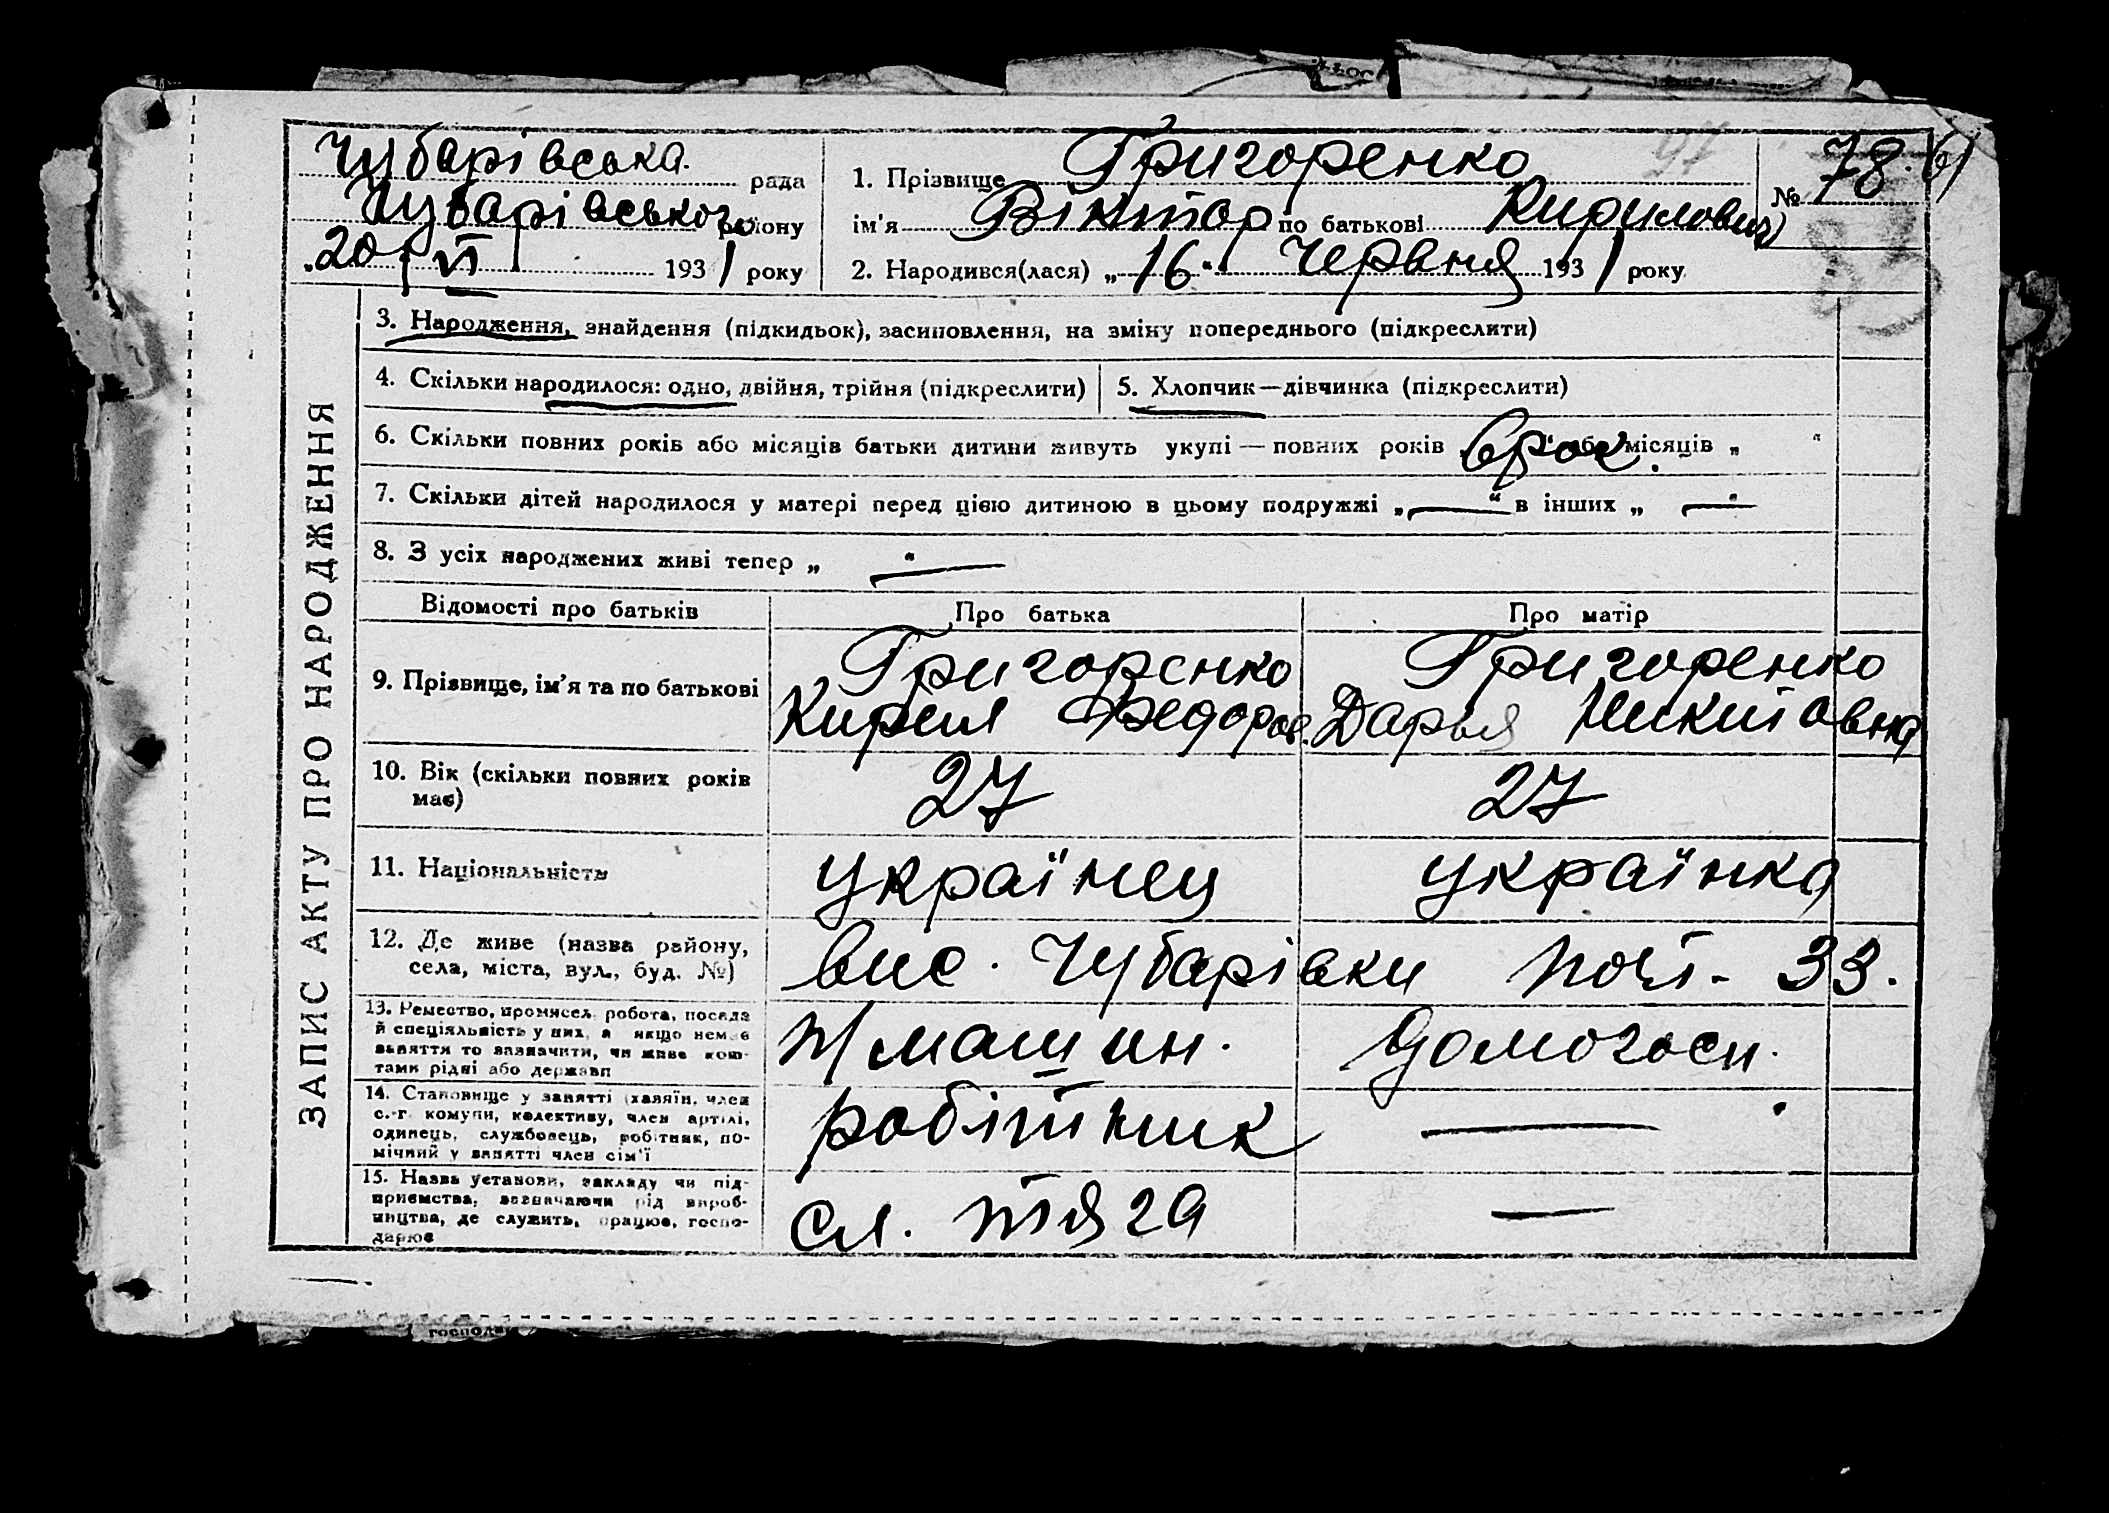 Чубарівська рада
Чубарівського району
20/VI 1931 року
1. Прізвище Григоренко
ім'я Віктор по батькові Кирилович
2. Народився(лася) „16" Червня 1931 року
№ 78
ЗАПИС АКТУ ПРО НАРОДЖЕННЯ
3. Народження, знайдення (підкидьок), засиновлення, на зміну попереднього (підкреслити)
4. Скільки народилося: одно, двійня, трійня (підкреслити)
5. Хлопчик—дівчинка (підкреслити)
6. Скільки повних років або місяців батьки дитини живуть укупі — повних років або місяців „ "
7. Скільки дітей народилося у матері перед цією дитиною в цьому подружжі „—" в інших „—"
8. З усіх народжених живі тепер „—"
Відомості про батьків
Про батька
Про матір
9. Прізвище, ім'я та по батькові
Григоренко
Кирил Федоров.
Григоренко
Дарья Никитовна
10. Вік (скільки повних років
має)
27
27
11. Національність
українец
українка
12. Де живе (назва району,
села, міста, вул., буд. №)
вис. Чубарівки 33.
13. Ремество, промисел, робота, посада
й спеціяльність у них, а якщо немає
заняття то зазначити, чи живе кош-
тами рідні або держави
машин.
домогосп.
14. Становище у занятті (хазяїн, член
с.-г. комуни, колективу, член артілі,
одинець, службовець, робітник, по-
мічний у занятті член сім'ї
робітник
—
15. Назва установи, закладу чи під-
приємства, зазначаючи рід вироб-
ництва, де служить, працює, госпо-
дарює
сл. тяга
—